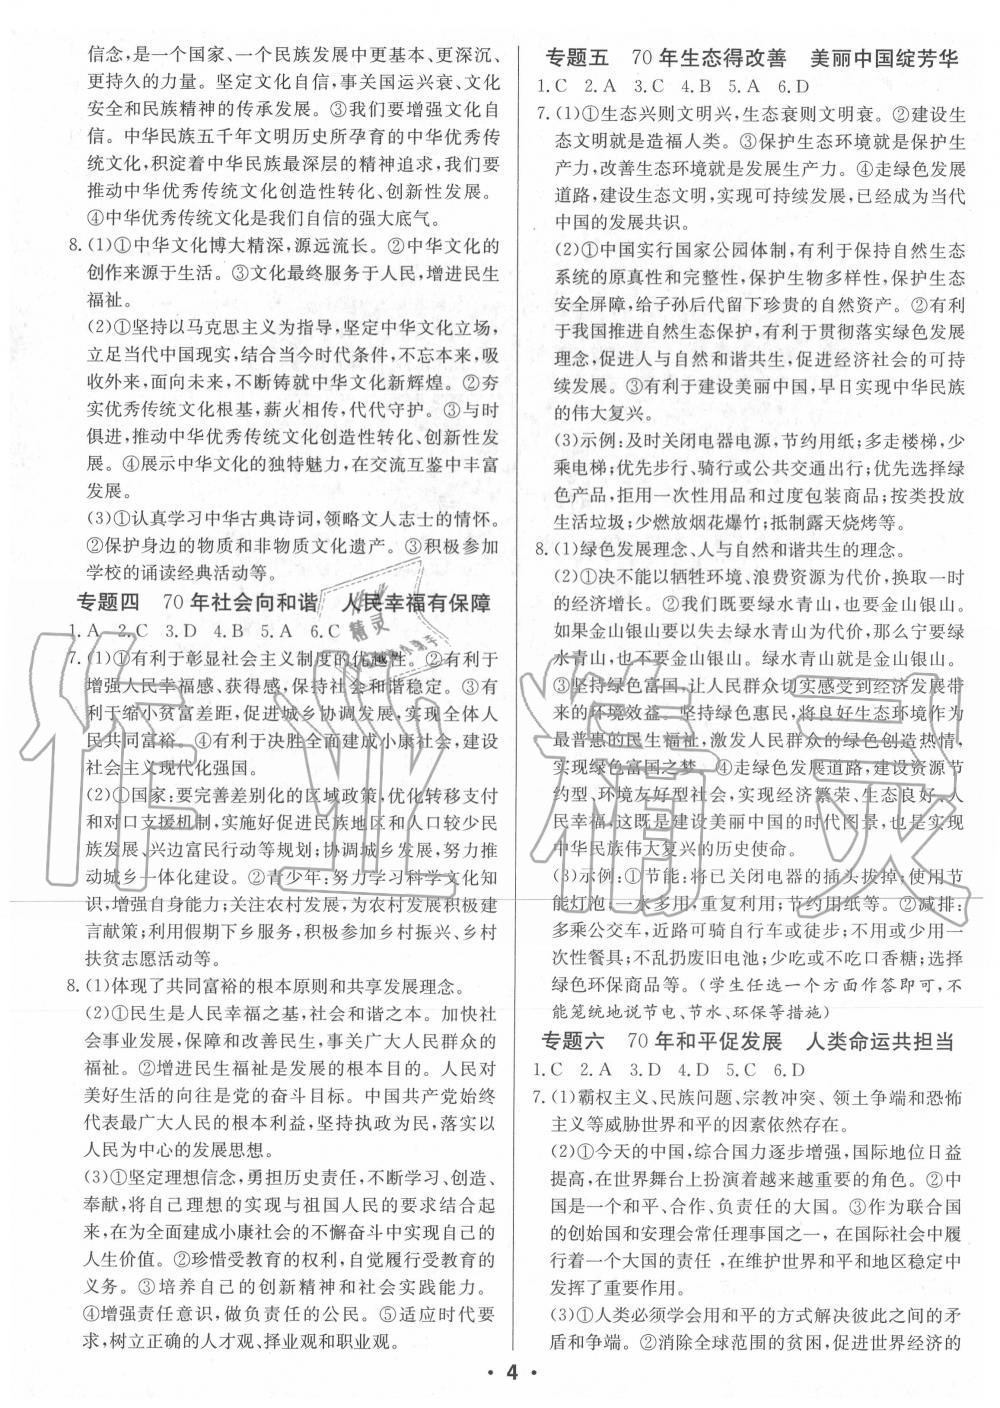 信念,是一个国家、一个民族发展中更基本、更深沉、
更持久的力量。坚定文化自信,事关国运兴衰、文化
安全和民族精神的传承发展。③我们要增强文化自
信。中华民族五千年文明历史所孕育的中华优秀传
统文化,积淀着中华民族最深层的精神追求,我们要
推动中华优秀传统文化创造性转化、创新性发展。
④中华优秀传统文化是我们自信的强大底气。
8.(1)①中华文化博大精深,源远流长。②中华文化的
创作来源于生活。③文化最终服务于人民,增进民生
福祉。
(2)①坚持以马克思主义为指导,坚定中华文化立场,
立足当代中国现实,结合当今时代条件,不忘本来,吸
收外来,面向未来,不断铸就中华文化新辉煌。②夯
实优秀传统文化根基,薪火相传,代代守护。③与时
俱进,推动中华优秀传统文化创造性转化、创新性发
展。④展示中华文化的独特魅力,在交流互鉴中丰富
发展。
(3)①认真学习中华古典诗词,领略文人志士的情怀。
②保护身边的物质和非物质文化遗产。③积极参加
学校的诵读经典活动等。
专题四 70年社会向和谐 人民幸福有保障
1.A 2.C 3.D 4.B 5.A 6.C
7.(1)①有利于彰显社会主义制度的优越性。②有利于
增强人民幸福感、获得感,保持社会和谐稳定。③有
利于缩小贫富差距,促进城乡协调发展,实现全体人
民共同富裕。④有利于决胜全面建成小康社会,建设
社会主义现代化强国。
(2)①国家:要完善差别化的区域政策,优化转移支付
和对口支援机制,实施好促进民族地区和人口较少民
族发展、兴边富民行动等规划;协调城乡发展,努力推
动城乡一体化建设。②青少年:努力学习科学文化知
识,增强自身能力;关注农村发展,为农村发展积极建
言献策;利用假期下乡服务,积极参加乡村振兴、乡村
扶贫志愿活动等。
8.(1)体现了共同富裕的根本原则和共享发展理念。
(2)①民生是人民幸福之基,社会和谐之本。加快社
会事业发展,保障和改善民生,事关广大人民群众的福
祉。②增进民生福祉是发展的根本目的。人民对
美好生活的向往是党的奋斗目标。中国共产党始终
代表最广大人民的根本利益,坚持执政为民,落实以
人民为中心的发展思想。
(3)①坚定理想信念,勇担历史责任,不断学习、创造、
奉献,将自己理想的实现与祖国人民的要求结合起
来,在为全面建成小康社会的不懈奋斗中实现自己的
人生价值。②珍惜受教育的权利,自觉履行受教育的
义务。③培养自己的创新精神和社会实践能力。
④增强责任意识,做负责任的公民。⑤适应时代要
求,树立正确的人才观、择业观和职业观。
专题五 70年生态得改善 美丽中国绽芳华
1.C 2.A 3.C 4.B 5.A 6.D
7.(1)①生态兴则文明兴,生态衰则文明衰。②建设生
态文明就是造福人类。③保护生态环境就是保护生
产力,改善生态环境就是发展生产力。④走绿色发展
道路,建设生态文明,实现可持续发展,已经成为当代
中国的发展共识。
(2)①中国实行国家公园体制,有利于保持自然生态
系统的原真性和完整性,保护生物多样性,保护生态
安全屏障,给子孙后代留下珍贵的自然资产。②有利
于我国推进自然生态保护,有利于贯彻落实绿色发展
理念,促进人与自然和谐共生,促进经济社会的可持
续发展。③有利于建设美丽中国,早日实现中华民族
的伟大复兴。
(3)示例:及时关闭电器电源,节约用纸;多走楼梯,少
乘电梯;优先步行、骑行或公共交通出行;优先选择绿
色产品,拒用一次性用品和过度包装商品;按类投放
生活垃圾;少燃放烟花爆竹;抵制露天烧烤等。
8.(1)绿色发展理念、人与自然和谐共生的理念。
(2)①决不能以牺牲环境、浪费资源为代价,换取一时
的经济增长。②我们既要绿水青山,也要金山银山。
如果金山银山要以失去绿水青山为代价,那么宁要绿
水青山,也不要金山银山。绿水青山就是金山银山。
③坚持绿色富国,让人民群众切实感受到经济发展带
来的环境效益。坚持绿色惠民,将良好生态环境作为
最普惠的民生福祉,激发人民群众的绿色创造热情,
实现绿色富国之梦。④走绿色发展道路,建设资源节
约型、环境友好型社会,实现经济繁荣、生态良好、人
民幸福,这既是建设美丽中国的时代图景,也是实现
中华民族伟大复兴的历史使命。
(3)示例:①节能:将已关闭电器的插头拔掉;使用节
能灯泡,一水多用,重复利用;节约用纸等。②减排:
多乘公交车,近路可骑自行车或者步行;少使用一
次性餐具;不乱扔废旧电池;少吃或不吃口香糖;选择
绿色环保商品等。(学生任选一个方面作答即可,不
能笼统地说节电、节水、环保等措施)
专题六 70年和平促发展 人类命运共担当
1.C 2.A 3.D 4.D 5.C 6.D
7.(1)霸权主义、民族问题、宗教冲突、领土争端和恐怖
主义等威胁世界和平的因素依然存在。
(2)①今天的中国,综合国力逐步增强,国际地位日益
提高,在世界舞台上扮演着越来越重要的角色。②中
国是一个和平、合作、负责任的大国。③作为联合国
的创始国和安理会常任理事国之一,在国际社会中履
行着一个大国的责任,在维护世界和平和地区稳定中
发挥了重要作用。
(3)①人类必须学会用和平的方式解决彼此之间的矛
盾和争端。②消除全球范围的贫困,促进世界经济的
· 4 ·
作业精灵